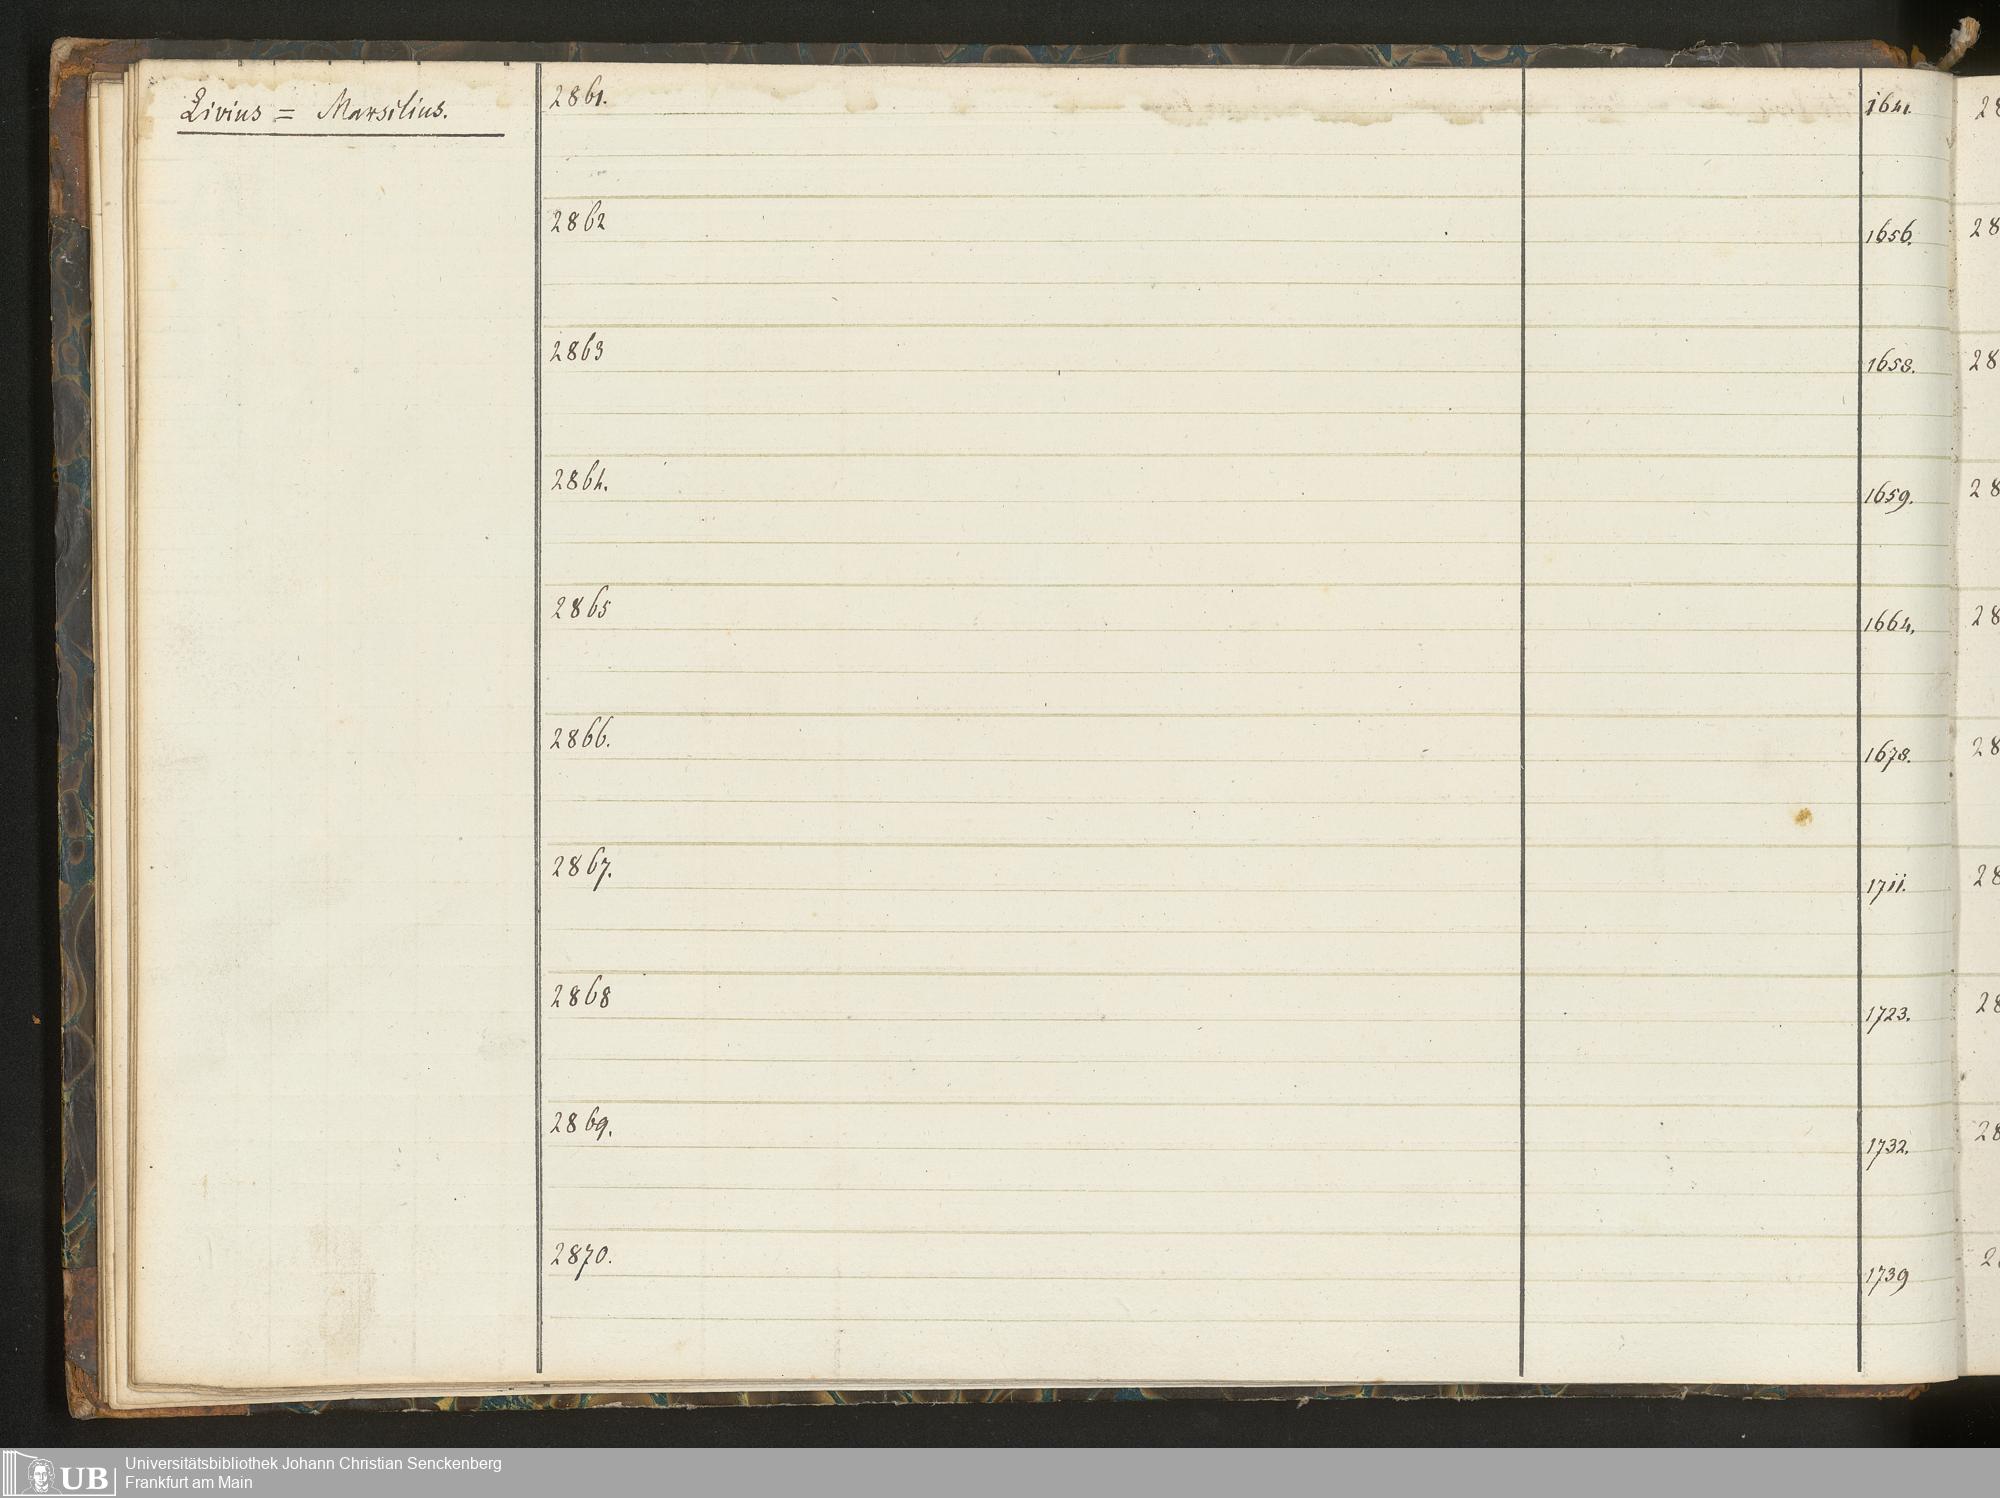 Livius = Marsilius.
2861. 1641. 28
2862 1656. 28
2863 1658. 28
2864. 1659. 28
2865 1664. 28
2866. 1678. 28
2867. 1711. 28
2868 1723. 28
2869. 1732. 28
2870. 1739 2
UB Universitätsbibliothek Johann Christian Senckenberg
Frankfurt am Main